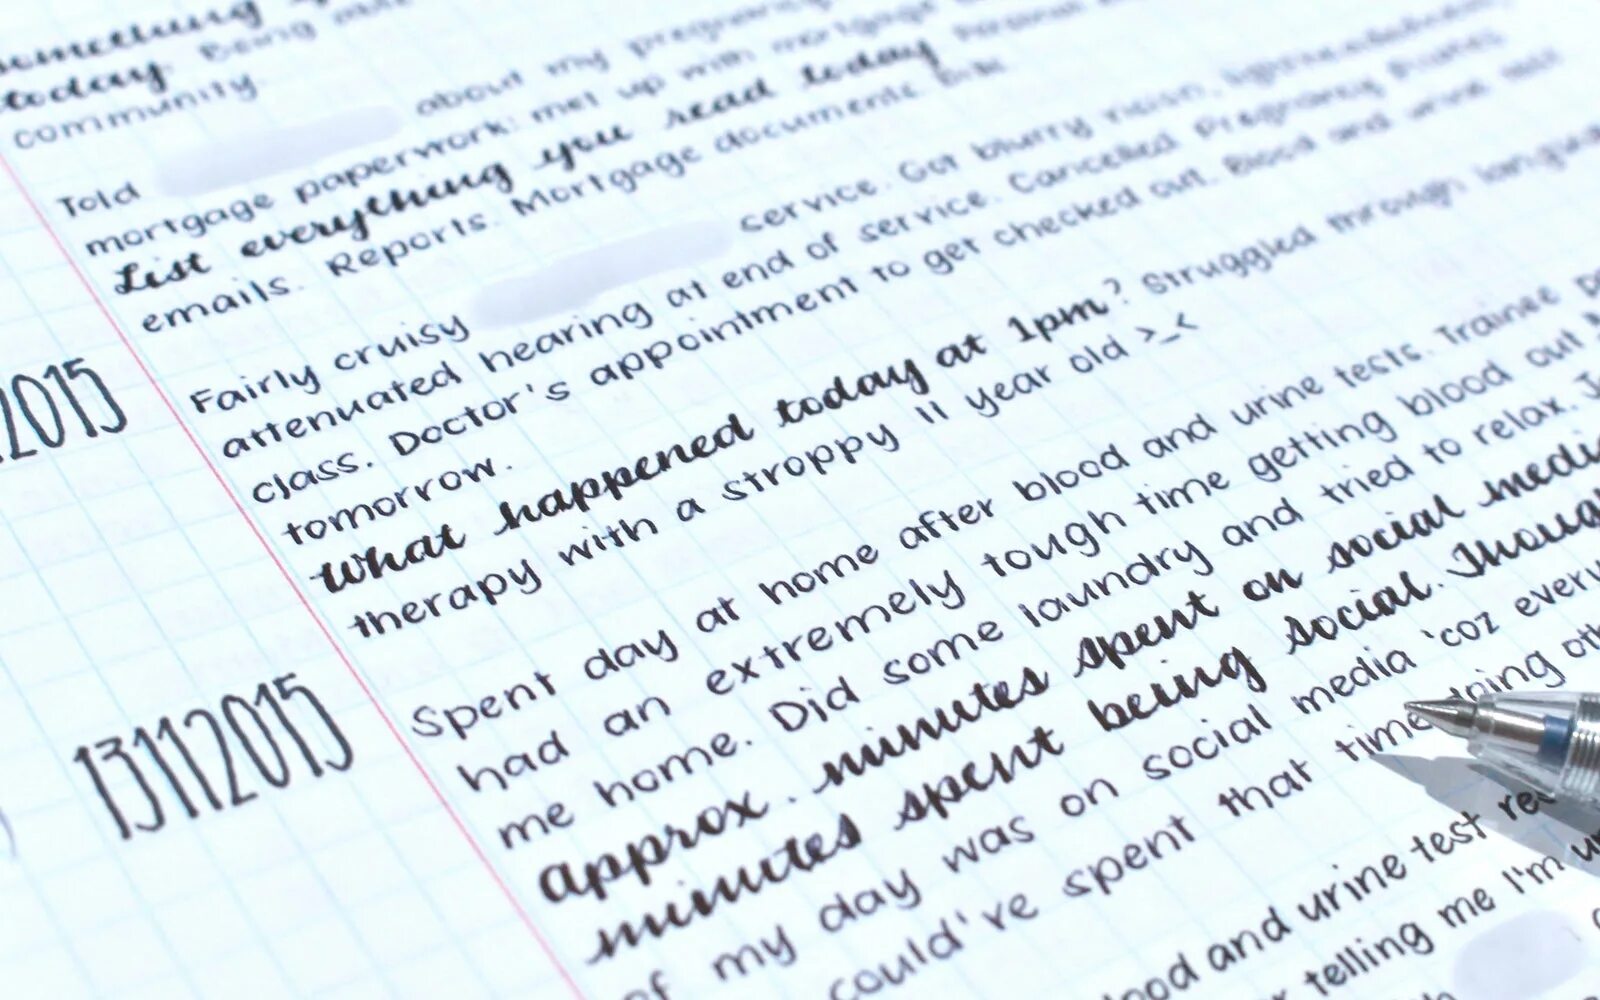 something
today. Being
community
Told about my
mortgage paperwork: met up with mortgage
List everything you read today Personal
emails. Reports. Mortgage documents.
2015
Fairly cruisy service. Got blurry vision,
attenuated hearing at end of service. Cancelled Pregnancy Pilates
class. Doctor's appointment to get checked out. Blood and urine test
tomorrow.
What happened today at 1pm? Struggled through language
therapy with a stroppy 11 year old >_<
13112015
Spent day at home after blood and urine tests. Trainee
had an extremely tough time getting blood out
me home. Did some laundry and tried to relax.
approx. minutes spent on social media
minutes spent being social.
of my day was on social media 'coz every
could've spent that time doing
and urine test
telling me I'm